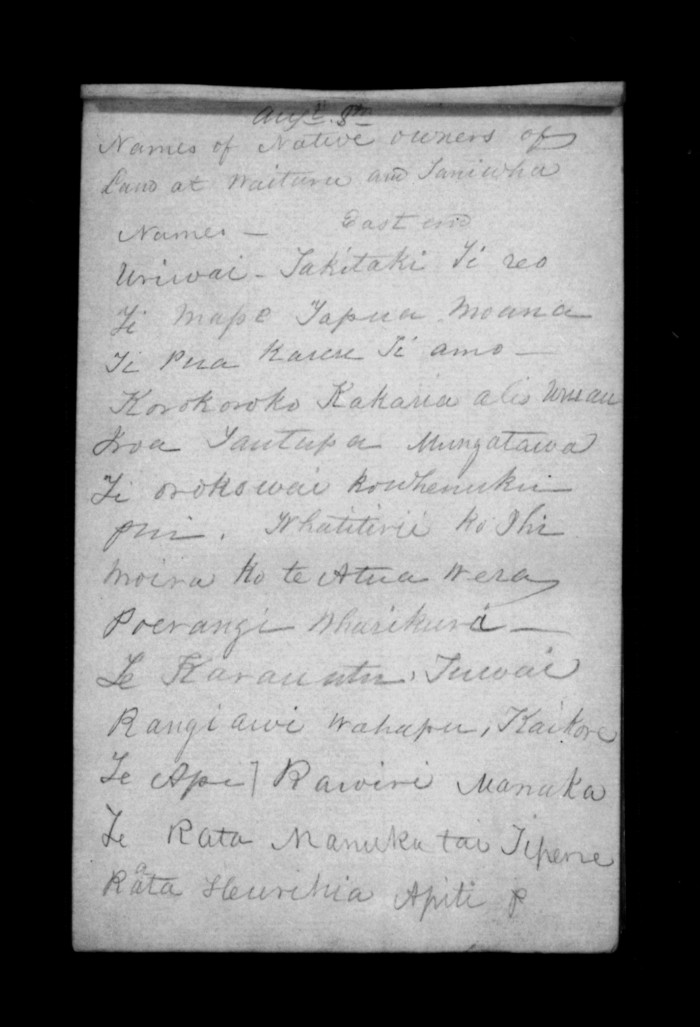 Augt. 8th
Names of Native owners of
Land at Waituru and Taniwha
Names — East end
Uriwai - Takitaki Ti reo
Ti Mape Tapua Moana
Ti Pua Karere Ti amo —
Korokoroko Kakaria
Kroa Tautupa Mungatawa
Ti orokowai
pui. Ko Ihi
Moira Ko te Atua Wera
Poerangi Wharikura —
Te Karauutu, Tuwai
Rangiawi Wahapu, Kaikore
Te Api] Rawiri Manuka
Te Rata Manuka tai Tiperne
Raata Heurihia Apiti P